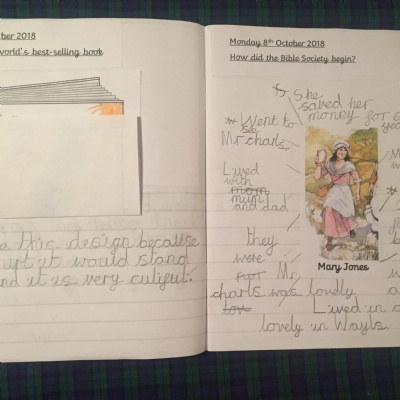 ber 2018
world's best-selling book
this design because
it would stand
nd it is very culiful.
Monday 8th October 2018
How did the Bible Society begin?
She
saved her
money for 6
yea
Went to
see
Mr charls.
Lived
with
mom
mum
and dad
they
were
poor
Mary Jones
Mr
charls was lovdly
Lived in a
lovely in Wayls.